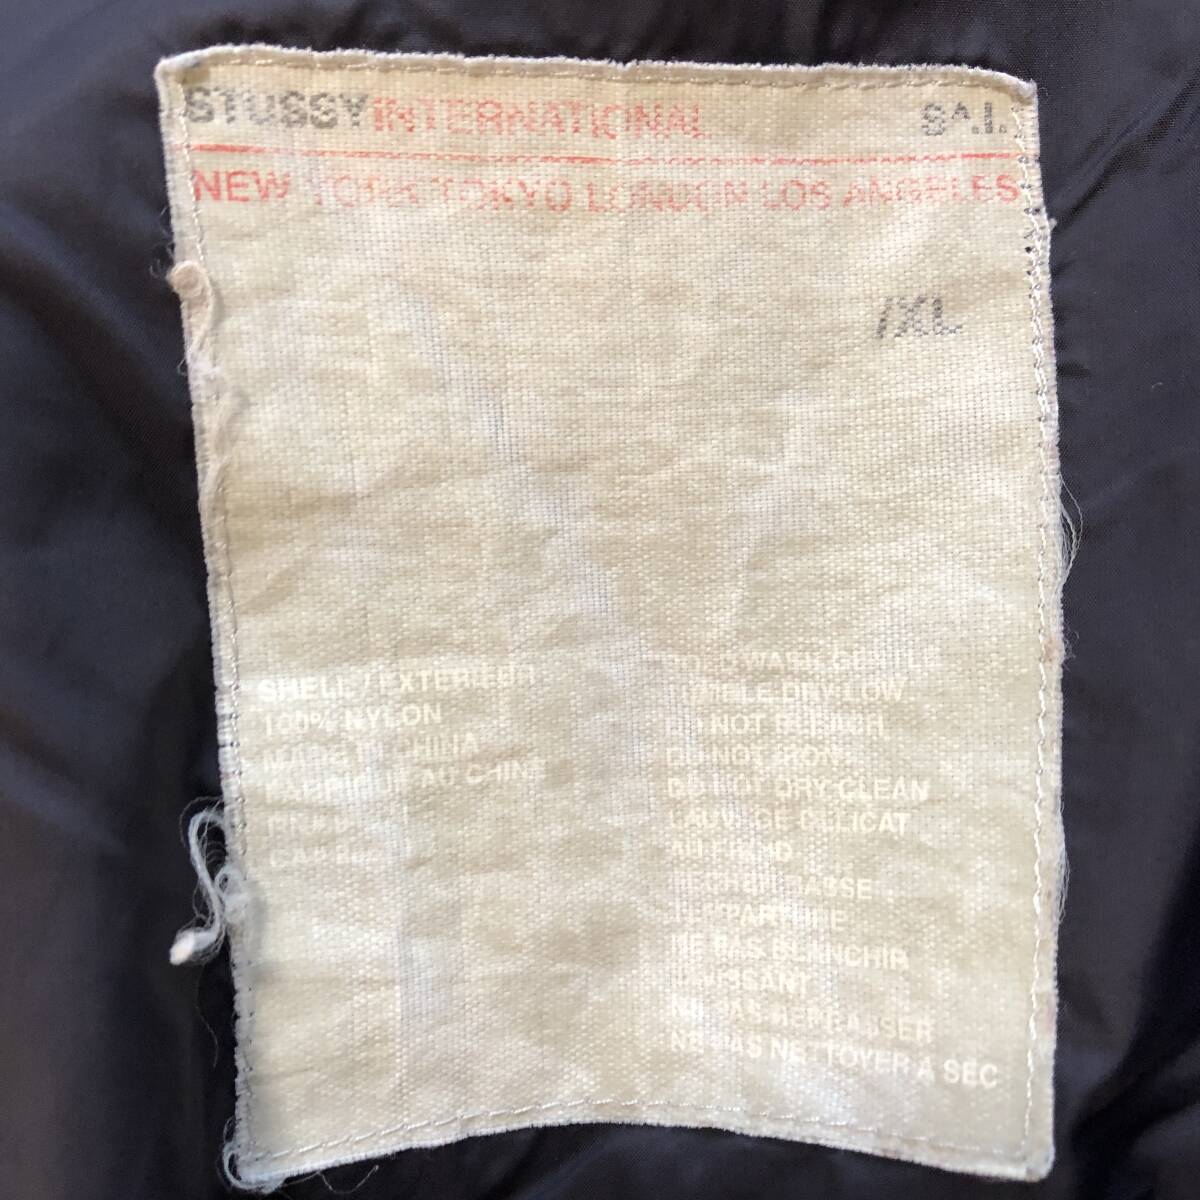 STUSSY INTERNATIONAL
NEW YORK TOKYO LONDON LOS ANGELES
/XL
SHELL / EXTERIEUR
100% NYLON
MADE IN CHINA
FABRIQUE AU CHINE
RN#
CA#
COLD WASH GENTLE
TUMBLE DRY LOW
DO NOT BLEACH
DO NOT IRON
DO NOT DRY CLEAN
LAUVAGE DLLICAT
AU FROID
SECHER BASSE
TEMPARTURE
NE PAS BLANCHIR
NE PAS REPRASSER
NE PAS NETTOYER A SEC